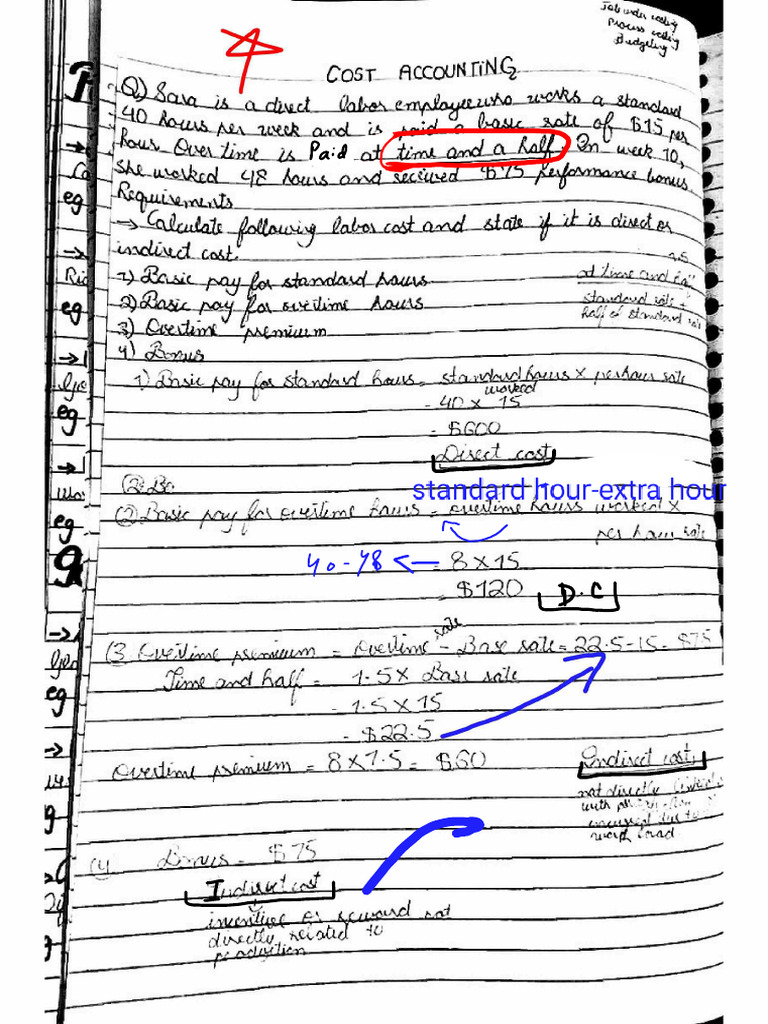 Job order costing
Process costing
Budgeting
COST ACCOUNTING
Q) Sara is a direct labor employee who works a standard
40 hours per week and is paid a basic rate of $15 per
hour. Overtime is Paid at time and a half. In week 10,
she worked 48 hours and secured $75 performance bonus.
Requirements
→ Calculate following labor cost and state if it is direct or
indirect cost.
1) Basic pay for standard hours
2) Basic pay for overtime hours
3) Overtime premium
4) Bonus
at time and half
standard rate +
half of standard rate
1) Basic pay for standard hours = standard hours × per hour rate
worked
= 40 × 15
= $600
Direct cost
(2) Ba
standard hour-extra hour
(2) Basic pay for overtime hours = overtime hours worked ×
per hour rate
40-48 ← = 8 × 15
= $120 D.C
(3 Overtime premium = Overtime rate - Base rate = 22.5-15 = $75
Time and half = 1.5 × Base rate
= 1.5 × 15
= $22.5
Overtime premium = 8 × 7.5 = $60
Indirect cost
not directly
with
incurred due to
work load
(4) Bonus = $75
Indirect cost
incentive or reward not
directly related to
production
eg
eg
eg
eg
eg